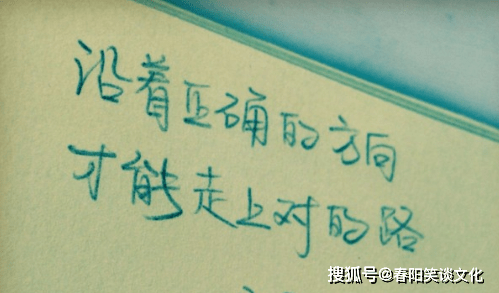 沿着正确的方向
才能走上对的路
搜狐号@春阳笑谈文化